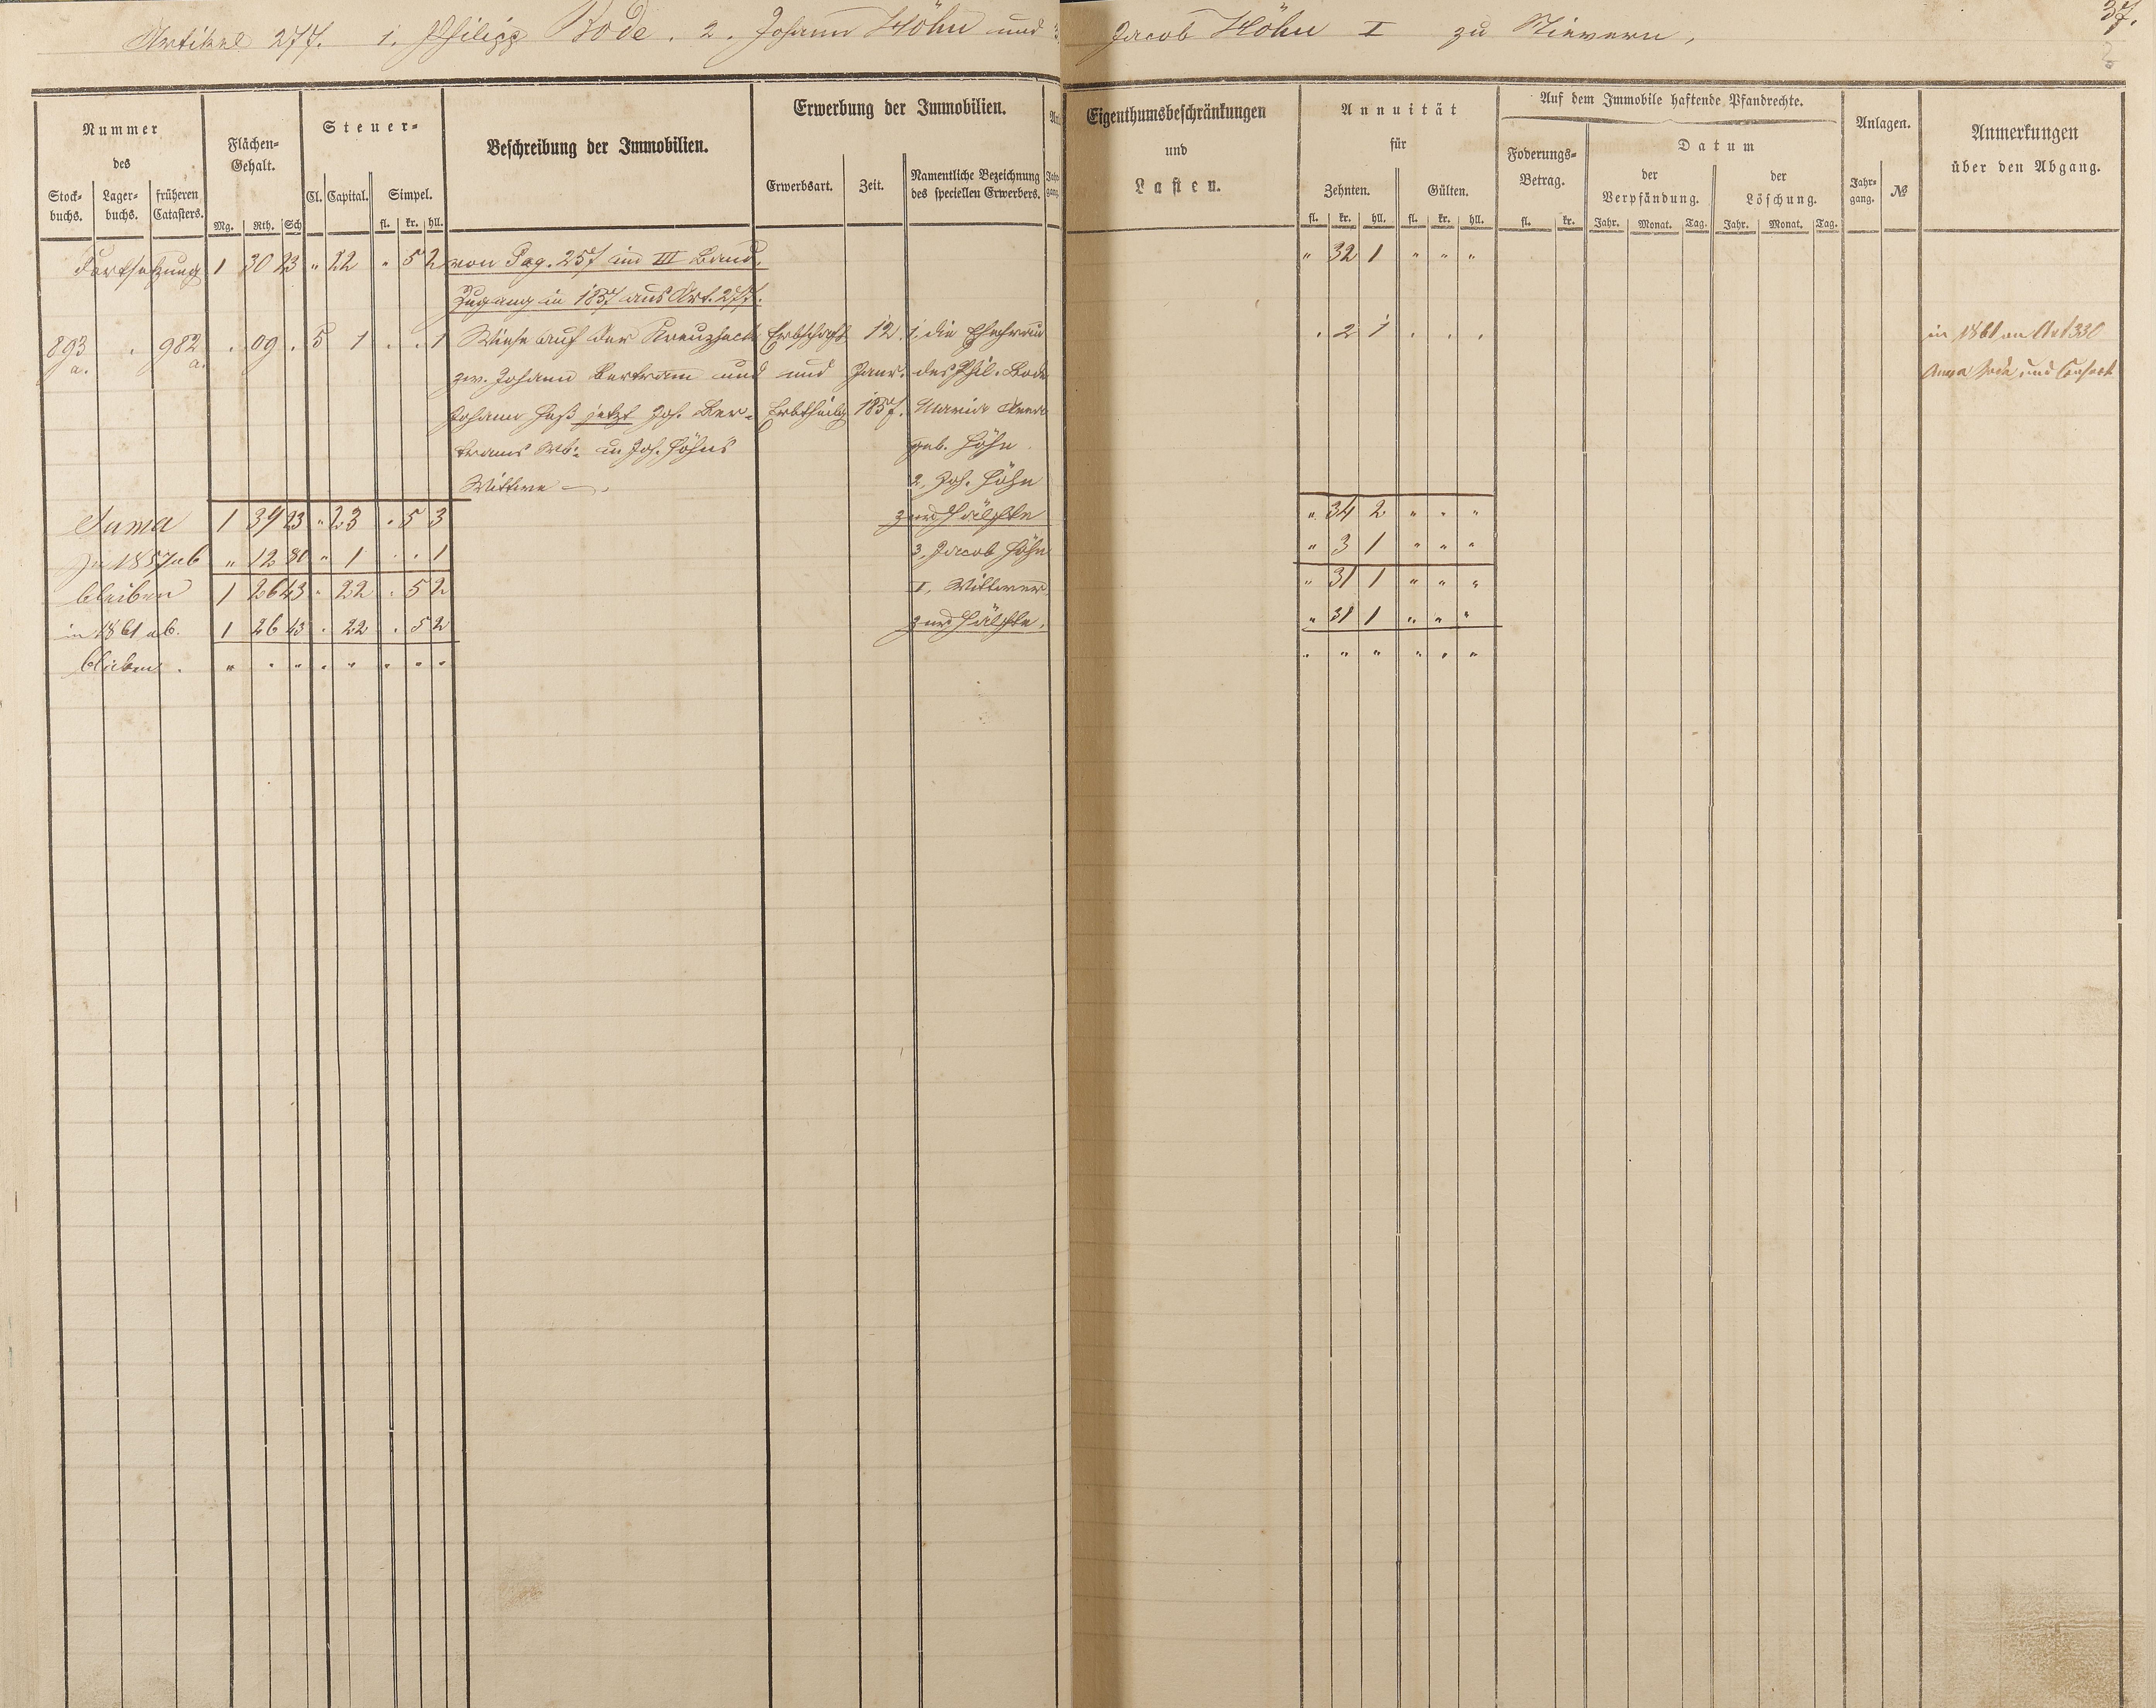 37.
Artikel 277. 1. Philipp Bode. 2. Johann Höhn und 3. Jacob Höhn I zu Nievern,
Nummer des
Stockbuchs. Lagerbuchs. früheren Catasters.
Flächen-Gehalt.
Mg. Rth. Sch
Steuer-
Cl. Capital. Simpel.
fl. kr. hll.
Beschreibung der Immobilien.
Erwerbung der Immobilien.
Erwerbsart. Zeit. Namentliche Bezeichnung des speciellen Erwerbers.
Eigenthumsbeschränkungen und Lasten.
Annuität für
Zehnten. Gülten.
fl. kr. hll. fl. kr. hll.
Auf dem Immobile haftende Pfandrechte.
Foderungs-Betrag.
fl. kr.
Datum
der Verpfändung. der Löschung.
Jahr. Monat. Tag. Jahr. Monat. Tag.
Anlagen.
Jahrgang. №
Anmerkungen über den Abgang.
Fortsetzung 1 30 23 " 22 " 5 2 von Pag. 257 im III Band. " 32 1 " " "
Zugang in 1857 aus Art. 277.
893 a. . 982 a. . 09 . 5 1 . . 1 Wiese auf der Kreuzheck Erbschaft 12. 1. die Ehefrau . 2 1 . . . in 1861 an Art 330
zw. Johann Bertram und und Janr. des Phil. Bode Anna Bode und Consort
Johann Heß jetzt Joh. Ber- Erbtheilg 1857. Maria
trams Wb: u Joh. Höhns geb. Höhn
Wittwe 2, Joh. Höhn
Suma 1 39 23 " 23 . 5 3 zur Hälfte " 34 2 " " "
In 1857 ab " 12 80 " 1 . . 1 3, Jacob Höhn " 3 1 " " "
bleiben 1 26 43 " 22 . 5 2 I, Wittwer " 31 1 " " "
in 1861 ab. 1 26 43 . 22 . 5 2 zur Hälfte. " 31 1 " " "
bleiben. " " " " " " " " " " " " " "